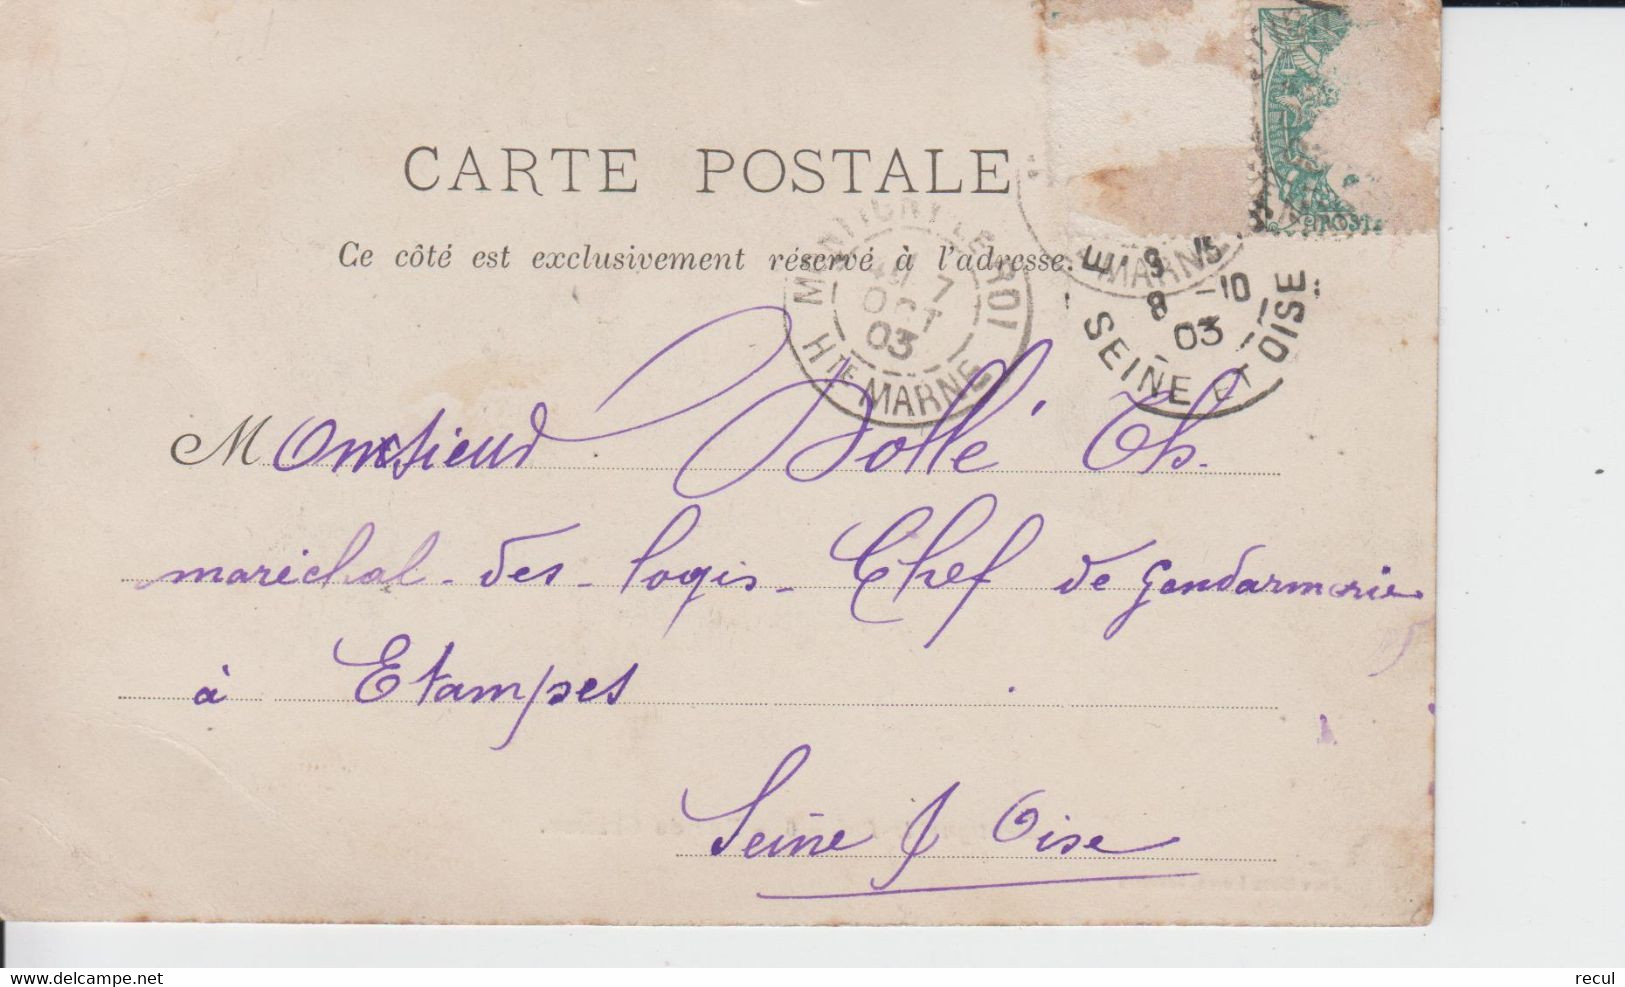 CARTE POSTALE
Ce côté est exclusivement réservé à l'adresse.
MONTIGNY LE ROI
7
OCT
03
HTE MARNE
MARNE
9 15
8 -10
03
E SEINE ET OISE
POSTE
Monsieur Dollé Ch.
maréchal-des-logis-Chef de gendarmerie
à Etampes
Seine & Oise
recul